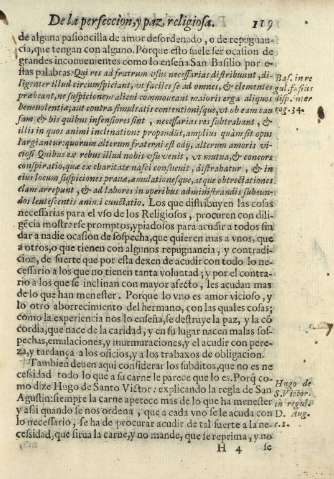 De la perfeccion, y paz religiosa. 119
de alguna pasioncilla de amor desordenado, o de repugnan-
cia, que tengan con alguno. Porque esto suele ser ocasion de
grandes inconuenientes como lo enseña San Basilio por e-
stas palabras: Qui res ad fratrum vsus necessarias distribuunt, di-
ligenter illud circumspiciant, vt faciles se ad omnes, & clementes
prabeant, ne suspicionem alicui commoueant maioris erga aliquos
beneuolentiæ; aut contra simultatis contentionisque, vt ob eam cau
sam & his quibus infensiores sint, necessarias res subtrahant, &
illis in quos animi inclinatione propendent, amplius quàm sit opus
largiantur: quorum alterum fraterni est odij, alterum amoris vi-
tiosi Quibus ex rebus illud nobis vsu venit, vt mutua, & concors
conspiratio, quæ ex charitate nasci consueuit, distrahatur, & in
eius locum suspiciones prauæ, æmulationesque, atque obtrectationes
etiam arrepant, & ad labores in operibus administrandis subeun-
dos lentescentis animi cunctatio. Los que distribuyen las cosas
necessarias para el vso de los Religiosos, procuren con dili-
gēcia mostrarse promptos, y piadosos para acudir a todos sin
dar a nadie ocasiōn de sospecha, que quieren mas a vnos, que
a otros, o que tienen con algunos repugnancia, y contradi-
cion, de suerte que por esta dexen de acudir con todo lo ne-
cessario a los que no tienen tanta voluntad; y por el contra-
rio a los que se inclinan con mayor afecto, les acudan mas
de lo que han menester. Porque lo vno es amor vicioso, y
lo otro aborrecimiento del hermano, con las quales cosas;
como la experiencia nos lo enseña, se destruye la paz, y la cō
cordia, que nace de la caridad, y en su lugar nacen malas sos-
pechas, emulaciones, y murmuraciones, y el acudir con pere-
za, y tardança a los oficios, y a los trabaxos de obligacion.
Tambien deuen aqui considerar los subditos, que no es ne
cessidad todo lo que a su carne le parece que lo es. Porq̄ co-
mo dize Hugo de Santo Victor: explicando la regla de San
Agustin: siempre la carne apetece mas de lo que ha menester
y assi quando se nos ordena, que a cada vno se le acuda con
lo necessario, se ha de procurar acudir de tal suerte a la ne-
cessidad, que sirua la carne, y no mande, que se reprima, y no
H 4 se
Bas. in re
gul. fusius
disp. inter
rog. 34.
Hugo de
S. Victor.
in regulā
D. Aug.
c. 1.